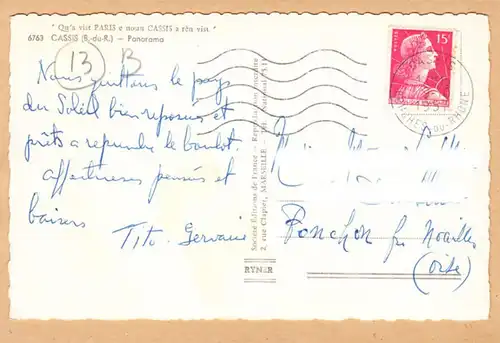 " Qu'a vist PARIS e noun CASSIS a rèn vist. "
6763 CASSIS (B.-du-R.) — Panorama
13 B
Nous quittons le pays
du Soleil bien reposés et
prêts à reprendre le boulot.
affectueuses pensées et
baisers
Tito Germaine
Société Editions de France — Reproduction interdite
2, rue Clapier, MARSEILLE
RYNER
15F
DU-RHONE
Ronchon par Noailles
(Oise)